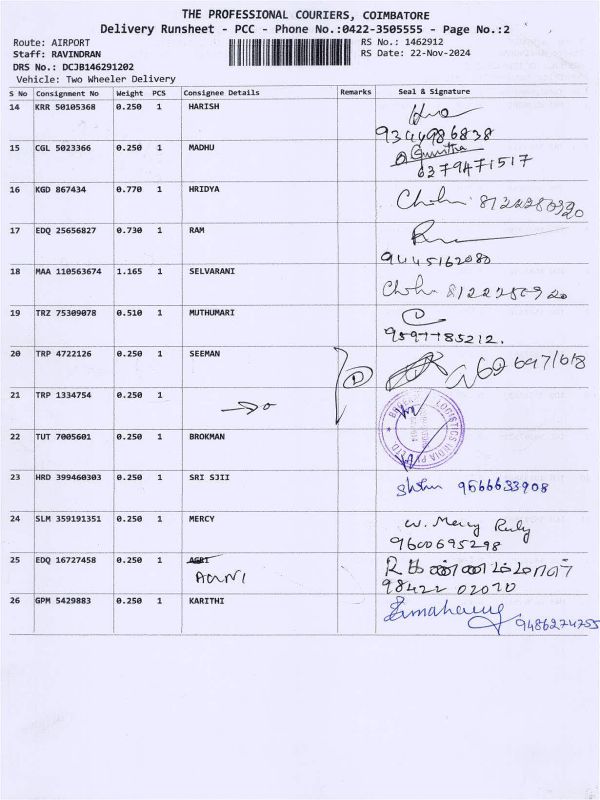 THE PROFESSIONAL COURIERS, COIMBATORE
Delivery Runsheet - PCC - Phone No.:0422-3505555 - Page No.:2
Route: AIRPORT
RS No.: 1462912
Staff: RAVINDRAN
RS Date: 22-Nov-2024
DRS No.: DCJB146291202
Vehicle: Two Wheeler Delivery
S No Consignment No Weight PCS Consignee Details Remarks Seal & Signature
14 KRR 50105368 0.250 1 HARISH
9344986838
15 CGL 5023366 0.250 1 MADHU
6379471517
16 KGD 867434 0.770 1 HRIDYA
17 EDQ 25656827 0.730 1 RAM
9445162080
18 MAA 110563674 1.165 1 SELVARANI
19 TRZ 75309078 0.510 1 MUTHUMARI
20 TRP 4722126 0.250 1 SEEMAN
21 TRP 1334754 0.250 1
LOGISTICS INDIA PVT LTD
22 TUT 7005601 0.250 1 BROKMAN
23 HRD 399460303 0.250 1 SRI SJII
9566633908
24 SLM 359191351 0.250 1 MERCY
W. Mercy Ruly
9600695298
25 EDQ 16727458 0.250 1 AGRI
98422 02070
26 GPM 5429883 0.250 1 KARITHI
9486274755